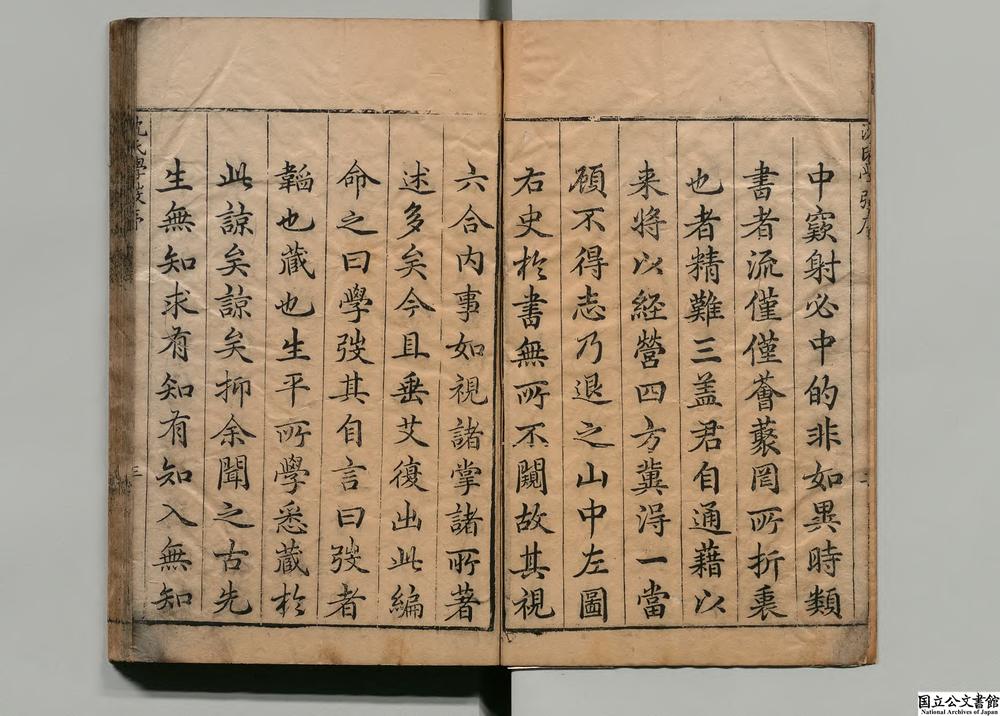 中窾射必中的非如異時類
書者流僅僅薈蕞罔所折衷
也者精難三盖君自通藉以
来將以經營四方冀淂一當
顧不得志乃退之山中左圖
右史於書無所不闚故其視
六合内事如視諸掌諸所著
述多矣今且垂艾復出此編
命之曰學弢其自言曰弢者
韜也蔵也生平所學悉蔵於
此諒矣諒矣抑余聞之古先
生無知求有知有知入無知
沈氏學弢序
三
国立公文書館
National Archives of Japan